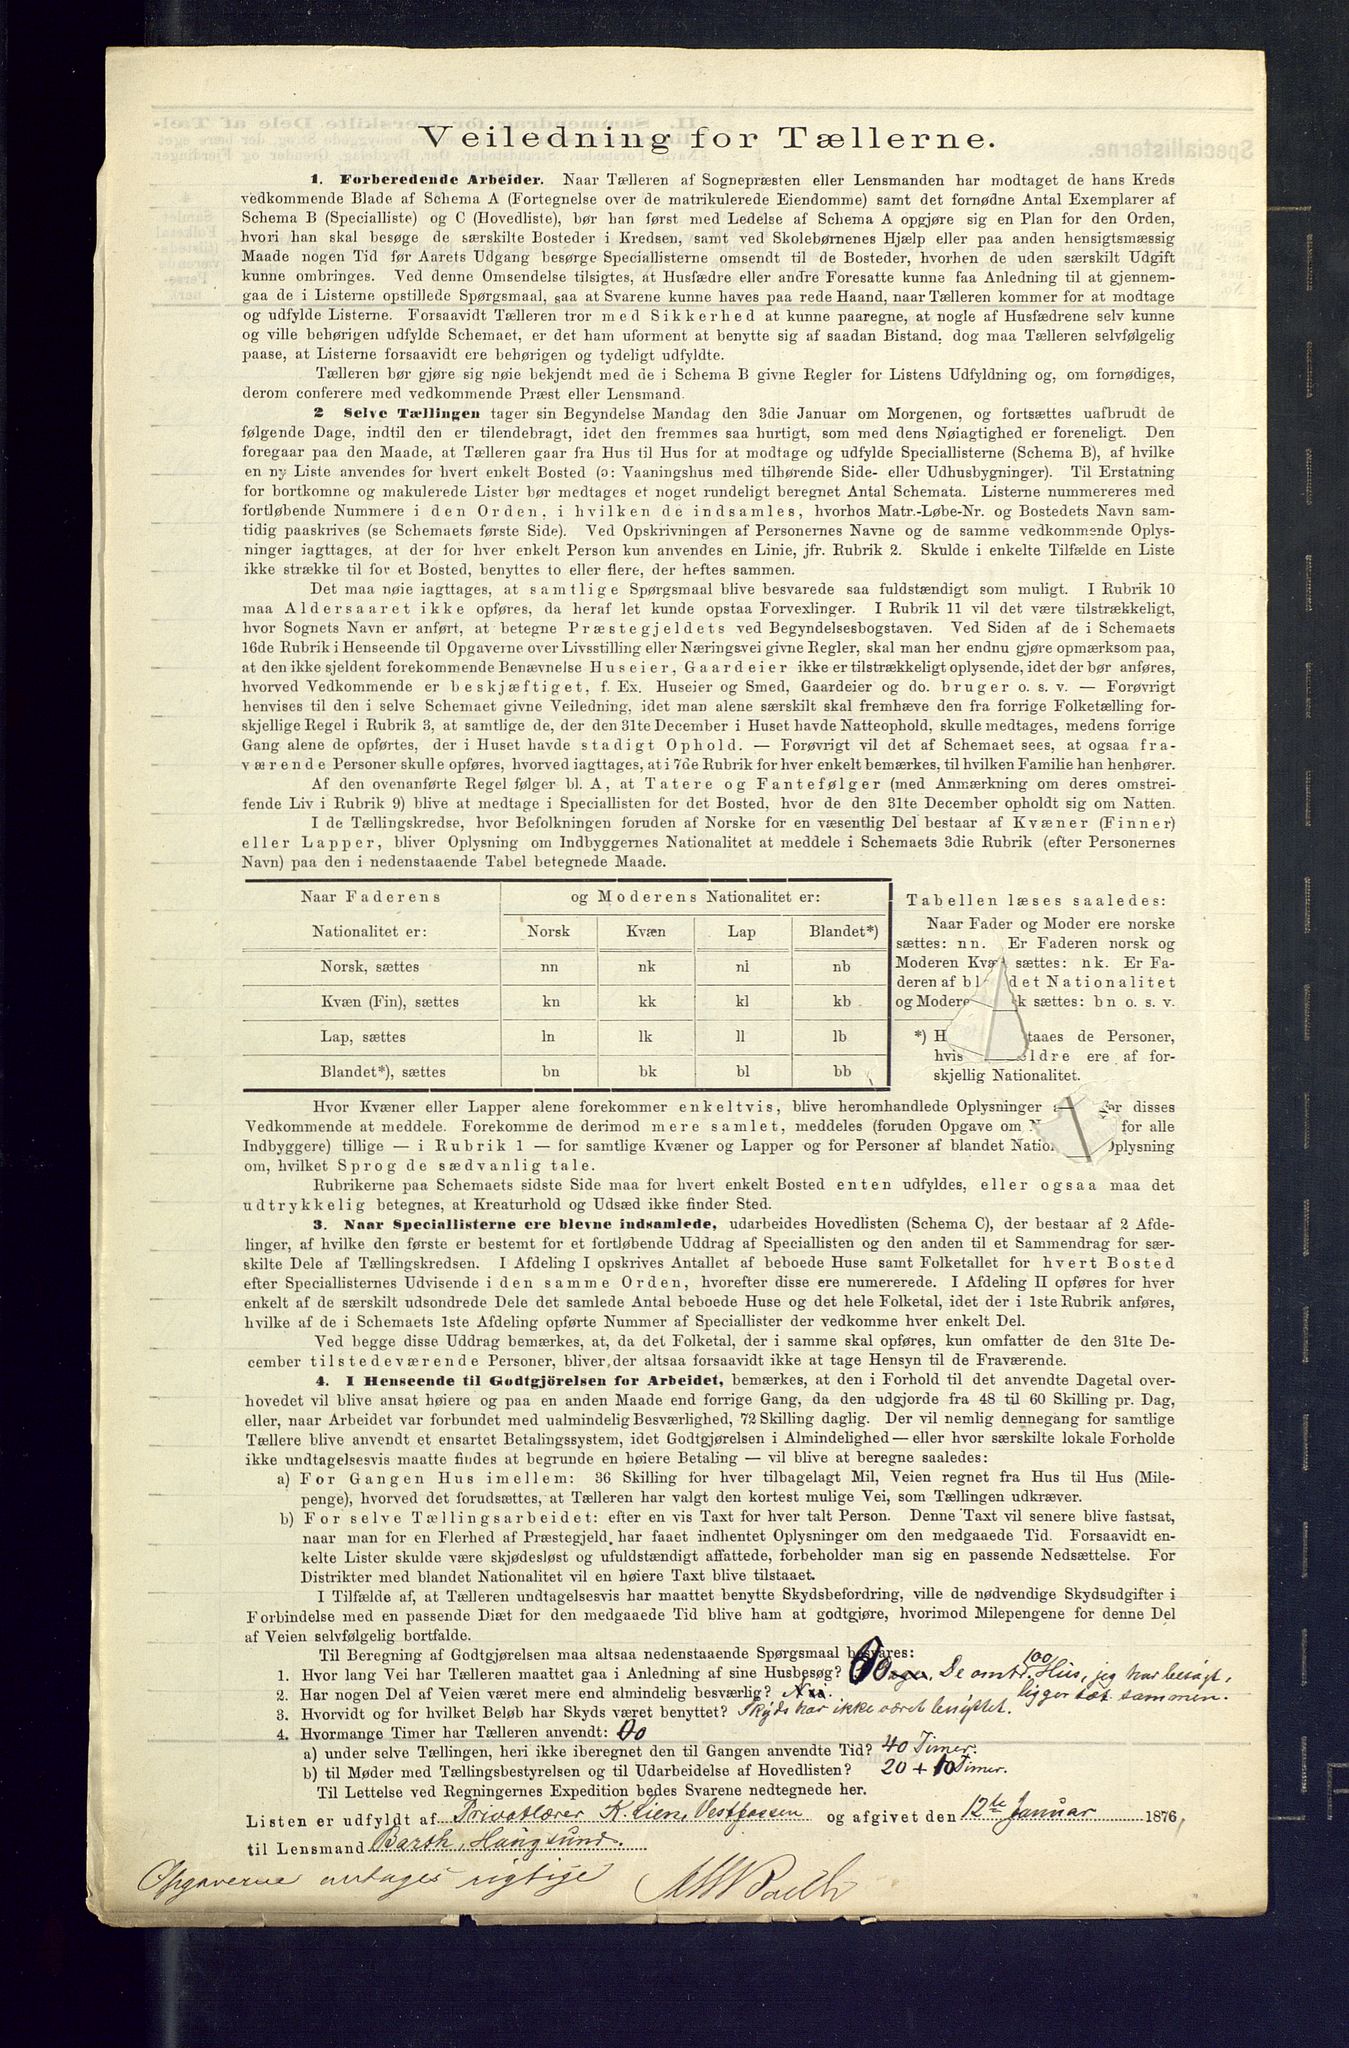 Veiledning for Tællerne.
1. Forberedende Arbeider. Naar Tælleren af Sognepræsten eller Lensmanden har modtaget de hans Kreds
vedkommende Blade af Schema A (Fortegnelse over de matrikulerede Eiendomme) samt det fornødne Antal Exemplarer af
Schema B (Specialliste) og C (Hovedliste), bør han først med Ledelse af Schema A opgjøre sig en Plan for den Orden,
hvori han skal besøge de særskilte Bosteder i Kredsen, samt ved Skolebørnenes Hjælp eller paa anden hensigtsmæssig
Maade nogen Tid før Aarets Udgang besørge Speciallisterne omsendt til de Bosteder, hvorhen de uden særskilt Udgift
kunne ombringes. Ved denne Omsendelse tilsigtes, at Husfædre eller andre Foresatte kunne faa Anledning til at gjennem-
gaa de i Listerne opstillede Spørgsmaal, saa at Svarene kunne haves paa rede Haand, naar Tælleren kommer for at modtage
og udfylde Listerne. Forsaavidt Tælleren tror med Sikkerhed at kunne paaregne, at nogle af Husfædrene selv kunne
og ville behørigen udfylde Schemaet, er det ham uforment at benytte sig af saadan Bistand, dog maa Tælleren selvfølgelig
paase, at Listerne forsaavidt ere behørigen og tydeligt udfyldte.
Tælleren bør gjøre sig nøie bekjendt med de i Schema B givne Regler for Listens Udfyldning og, om fornødiges,
derom conferere med vedkommende Præst eller Lensmand.
2 Selve Tællingen tager sin Begyndelse Mandag den 3die Januar om Morgenen, og fortsættes uafbrudt de
følgende Dage, indtil den er tilendebragt, idet den fremmes saa hurtigt, som med dens Nøiagtighed er foreneligt. Den
foregaar paa den Maade, at Tælleren gaar fra Hus til Hus for at modtage og udfylde Speciallisterne (Schema B), af hvilke
en ny Liste anvendes for hvert enkelt Bosted (ɔ: Vaaningshus med tilhørende Side- eller Udhusbygninger). Til Erstatning
for bortkomne og makulerede Lister bør medtages et noget rundeligt beregnet Antal Schemata. Listerne nummereres med
fortløbende Nummere i den Orden, i hvilken de indsamles, hvorhos Matr.-Løbe-Nr. og Bostedets Navn sam-
tidig paaskrives (se Schemaets første Side). Ved Opskrivningen af Personernes Navne og de samme vedkommende Oplys-
ninger iagttages, at der for hver enkelt Person kun anvendes en Linie, jfr. Rubrik 2. Skulde i enkelte Tilfælde en Liste
ikke strække til for et Bosted, benyttes to eller flere, der heftes sammen.
Det maa nøie iagttages, at samtlige Spørgsmaal blive besvarede saa fuldstændigt som muligt. I Rubrik 10
maa Aldersaaret ikke opføres, da heraf let kunde opstaa Forvexlinger. I Rubrik 11 vil det være tilstrækkeligt,
hvor Sognets Navn er anført, at betegne Præstegjeldets ved Begyndelsesbogstaven. Ved Siden af de i Schemaets
16de Rubrik i Henseende til Opgaverne over Livsstilling eller Næringsvei givne Regler, skal man her endnu gjøre opmærksom paa,
at den ikke sjeldent forekommende Benævnelse Huseier, Gaardeier ikke er tilstrækkeligt oplysende, idet der bør anføres,
hvorved Vedkommende er beskjæftiget, f. Ex. Huseier og Smed, Gaardeier og do. bruger o. s. v. — Forøvrigt
henvises til den i selve Schemaet givne Veiledning, idet man alene særskilt skal fremhæve den fra forrige Folketælling for-
skjellige Regel i Rubrik 3, at samtlige de, der den 31te December i Huset havde Natteophold, skulle medtages, medens forrige
Gang alene de opførtes, der i Huset havde stadigt Ophold. — Forøvrigt vil det af Schemaet sees, at ogsaa fra-
værende Personer skulle opføres, hvorved iagttages, at i 7de Rubrik for hver enkelt bemærkes, til hvilken Familie han henhører.
Af den ovenanførte Regel følger bl. A, at Tatere og Fantefølger (med Anmærkning om deres omstrei-
fende Liv i Rubrik 9) blive at medtage i Speciallisten for det Bosted, hvor de den 31te December opholdt sig om Natten.
I de Tællingskredse, hvor Befolkningen foruden af Norske for en væsentlig Del bestaar af Kvæner (Finner)
eller Lapper, bliver Oplysning om Indbyggernes Nationalitet at meddele i Schemaets 3die Rubrik (efter Personernes
Navn) paa den i nedenstaaende Tabel betegnede Maade.
Naar Faderens og Moderens Nationalitet er:
Nationalitet er: Norsk Kvæn Lap Blandet*)
Norsk, sættes nn nk nl nb
Kvæn (Fin), sættes kn kk kl kb
Lap, sættes ln lk ll lb
Blandet*), sættes bn bk bl bb
Tabellen læses saaledes:
Naar Fader og Moder ere norske
sættes: nn. Er Faderen norsk og
Moderen Kvæn sættes: nk. Er Fa-
deren af det Nationalitet
og Modere k sættes: bn o. s. v.
*) H taaes de Personer,
hvis ældre ere af for-
skjellig Nationalitet.
Hvor Kvæner eller Lapper alene forekommer enkeltvis, blive heromhandlede Oplysninger for disses
Vedkommende at meddele. Forekomme de derimod mere samlet, meddeles (foruden Opgave om for alle
Indbyggere) tillige — i Rubrik 1 — for samtlige Kvæner og Lapper og for Personer af blandet Natio Oplysning
om, hvilket Sprog de sædvanlig tale.
Rubrikerne paa Schemaets sidste Side maa for hvert enkelt Bosted enten udfyldes, eller ogsaa maa det
udtrykkelig betegnes, at Kreaturhold og Udsæd ikke finder Sted.
3. Naar Speciallisterne ere blevne indsamlede, udarbeides Hovedlisten (Schema C), der bestaar af 2 Afde-
linger, af hvilke den første er bestemt for et fortløbende Uddrag af Speciallisten og den anden til et Sammendrag for sær-
skilte Dele af Tællingskredsen. I Afdeling I opskrives Antallet af beboede Huse samt Folketallet for hvert Bosted
efter Speciallisternes Udvisende i den samme Orden, hvorefter disse ere numererede. I Afdeling II opføres for hver
enkelt af de særskilt udsondrede Dele det samlede Antal beboede Huse og det hele Folketal, idet der i 1ste Rubrik anføres,
hvilke af de i Schemaets 1ste Afdeling opførte Nummer af Speciallister der vedkomme hver enkelt Del.
Ved begge disse Uddrag bemærkes, at, da det Folketal, der i samme skal opføres, kun omfatter de den 31te De-
cember tilstedeværende Personer, bliver der altsaa forsaavidt ikke at tage Hensyn til de Fraværende.
4. I Henseende til Godtgjörelsen for Arbeidet, bemærkes, at den i Forhold til det anvendte Dagetal over-
hovedet vil blive ansat høiere og paa en anden Maade end forrige Gang, da den udgjorde fra 48 til 60 Skilling pr. Dag,
eller, naar Arbeidet var forbundet med ualmindelig Besværlighed, 72 Skilling daglig. Der vil nemlig dennegang for samtlige
Tællere blive anvendt et ensartet Betalingssystem, idet Godtgjørelsen i Almindelighed — eller hvor særskilte lokale Forholde
ikke undtagelsesvis maatte findes at begrunde en høiere Betaling — vil blive at beregne saaledes:
a) For Gangen Hus imellem: 36 Skilling for hver tilbagelagt Mil, Veien regnet fra Hus til Hus (Mile-
penge), hvorved det forudsættes, at Tælleren har valgt den kortest mulige Vei, som Tællingen udkræver.
b) For selve Tællingsarbeidet: efter en vis Taxt for hver talt Person. Denne Taxt vil senere blive fastsat,
naar man for en Flerhed af Præstegjeld har faaet indhentet Oplysninger om den medgaaede Tid. Forsaavidt en-
kelte Lister skulde være skjødesløst og ufuldstændigt affattede, forbeholder man sig en passende Nedsættelse. For
Distrikter med blandet Nationalitet vil en høiere Taxt blive tilstaaet.
I Tilfælde af, at Tælleren undtagelsesvis har maattet benytte Skydsbefordring, ville de nødvendige Skydsudgifter i
Forbindelse med en passende Diæt for den medgaaede Tid blive ham at godtgjøre, hvorimod Milepengene for denne Del
af Veien selvfølgelig bortfalde.
Til Beregning af Godtgjørelsen maa altsaa nedenstaaende Spørgsmaal besvares:
1. Hvor lang Vei har Tælleren maattet gaa i Anledning af sine Husbesøg? De omtr. 100 Hus, jeg har besøgt,
ligger tæt sammen.
2. Har nogen Del af Veien været mere end almindelig besværlig? Nei.
3. Hvorvidt og for hvilket Beløb har Skyds været benyttet? Skyds har ikke været benyttet.
4. Hvormange Timer har Tælleren anvendt:
a) under selve Tællingen, heri ikke iberegnet den til Gangen anvendte Tid? 40 Timer.
b) til Møder med Tællingsbestyrelsen og til Udarbeidelse af Hovedlisten? 20 + 10 Timer.
Til Lettelse ved Regningernes Expedition bedes Svarene nedtegnede her.
Listen er udfyldt af Privatlærer K. Lien, Vestfossen og afgivet den 12te Januar 1876,
til Lensmand Barth, Haugsund.
Opgaverne antages rigtige